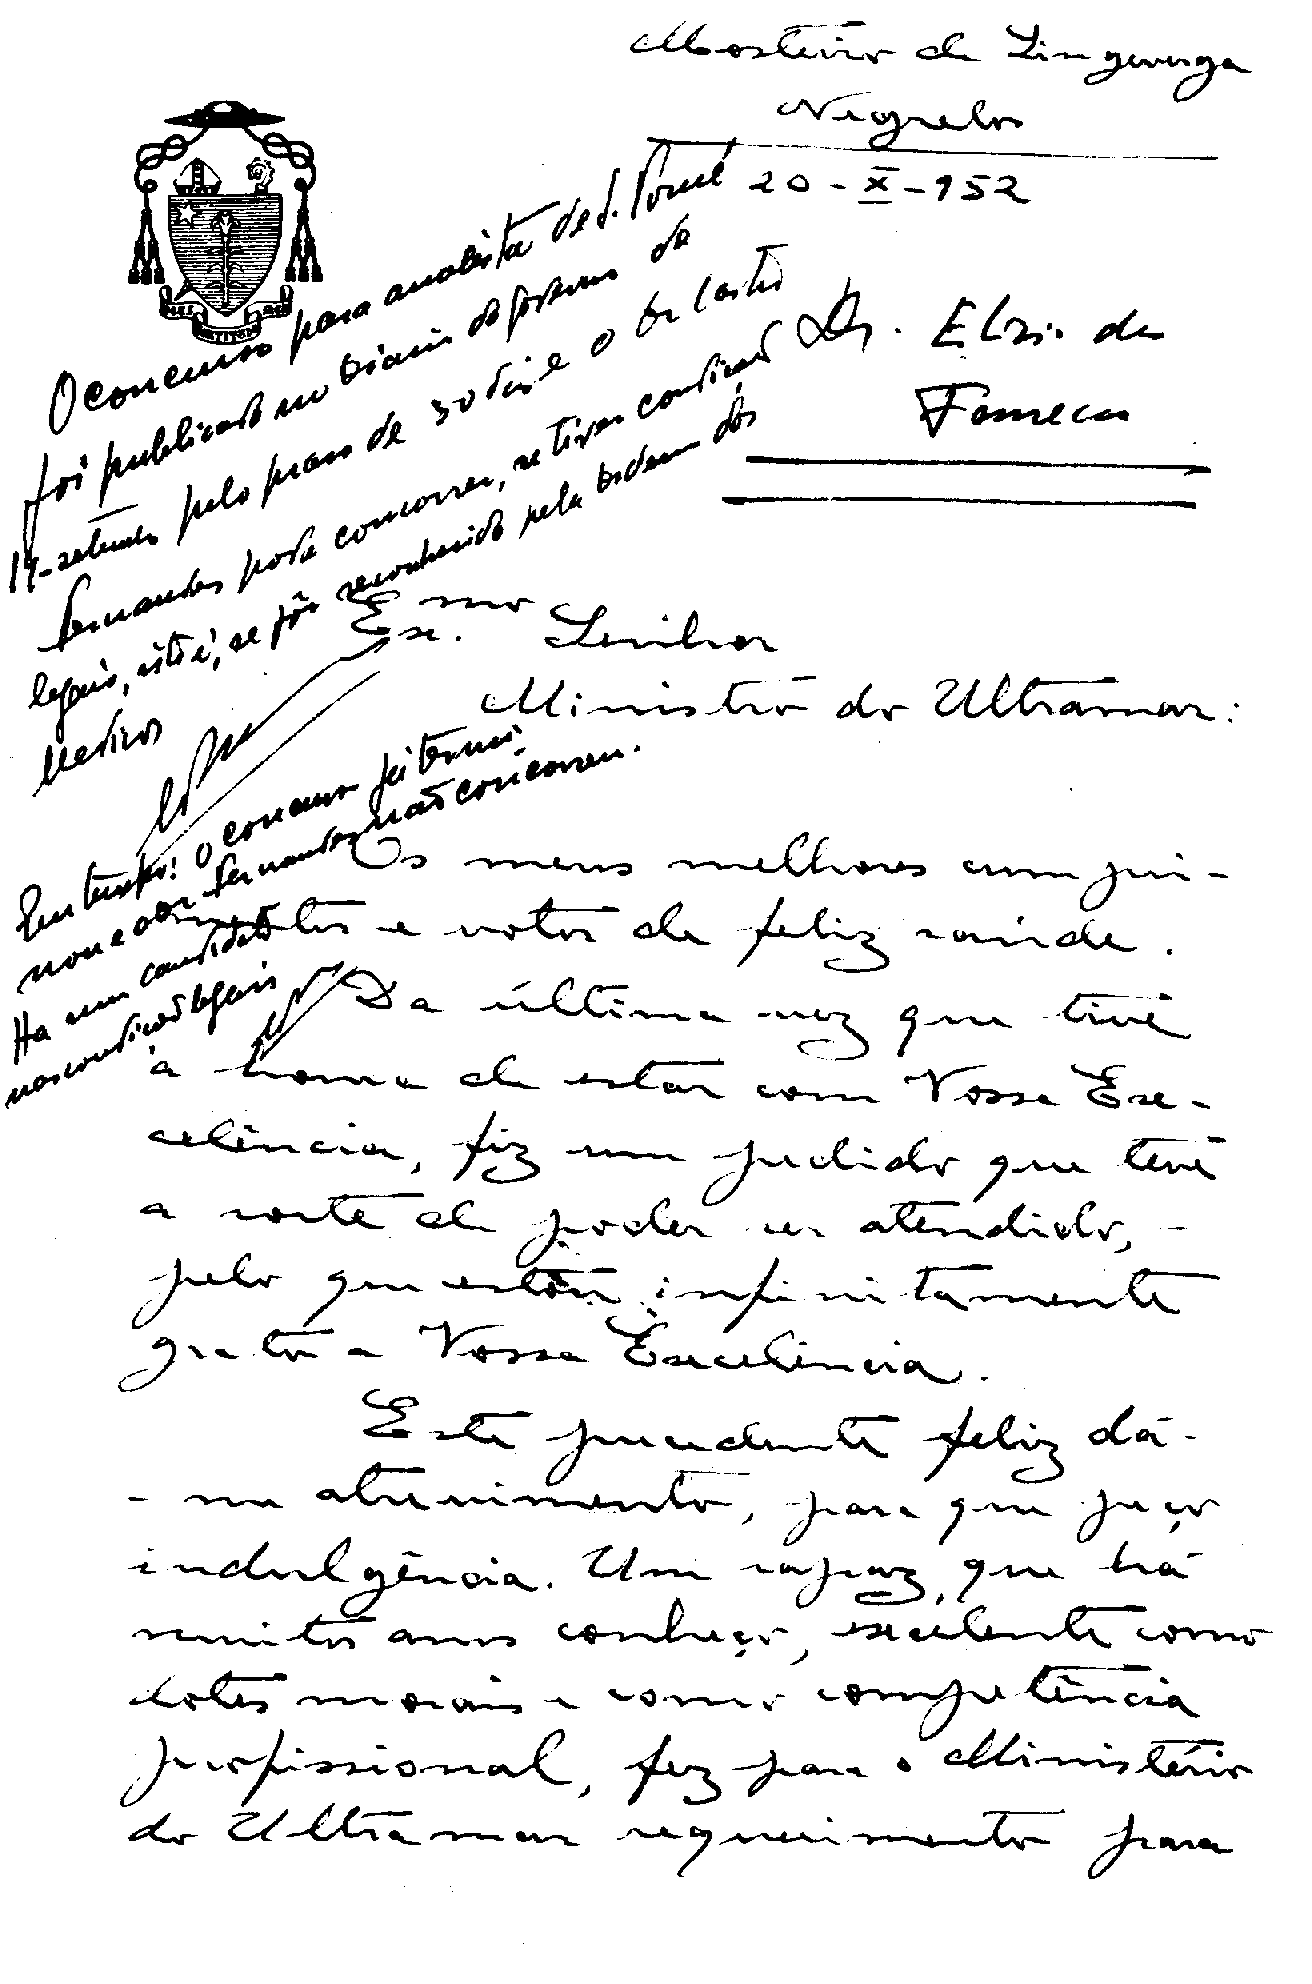 Mosteiro de Singeverga
Negrelos
20-X-952
Dr. Elsio da
Fonseca
O concurso para analista de S. Tomé
foi publicado no Diário do Governo de
17-setembro pelo prazo de 30 dias e o Dr Castro
Fernandes pode concorrer, se tiver condições
legais, isto é, se fôr reconhecido pela Ordem dos
Médicos
Em tempo: O concurso já termi-
nou e o Dr Fernandes não concorreu.
Ha um candidato
nas condições legais
Ex.mo Senhor
Ministro do Ultramar:
Os meus melhores cumpri-
mentos e votos de feliz saúde.
Da última vez que tive
a honra de estar com Vossa Ex-
celência, fiz um pedido que teve
a sorte de poder ser atendido, -
pelo que estou infinitamente
grato a Vossa Excelência.
Este precedente feliz dá-
- me atrevimento, para que peço
indulgência. Um rapaz, que há
muitos anos conheço, excelente como
dotes morais e como competência
profissional, fez para o Ministério
do Ultramar requerimento para